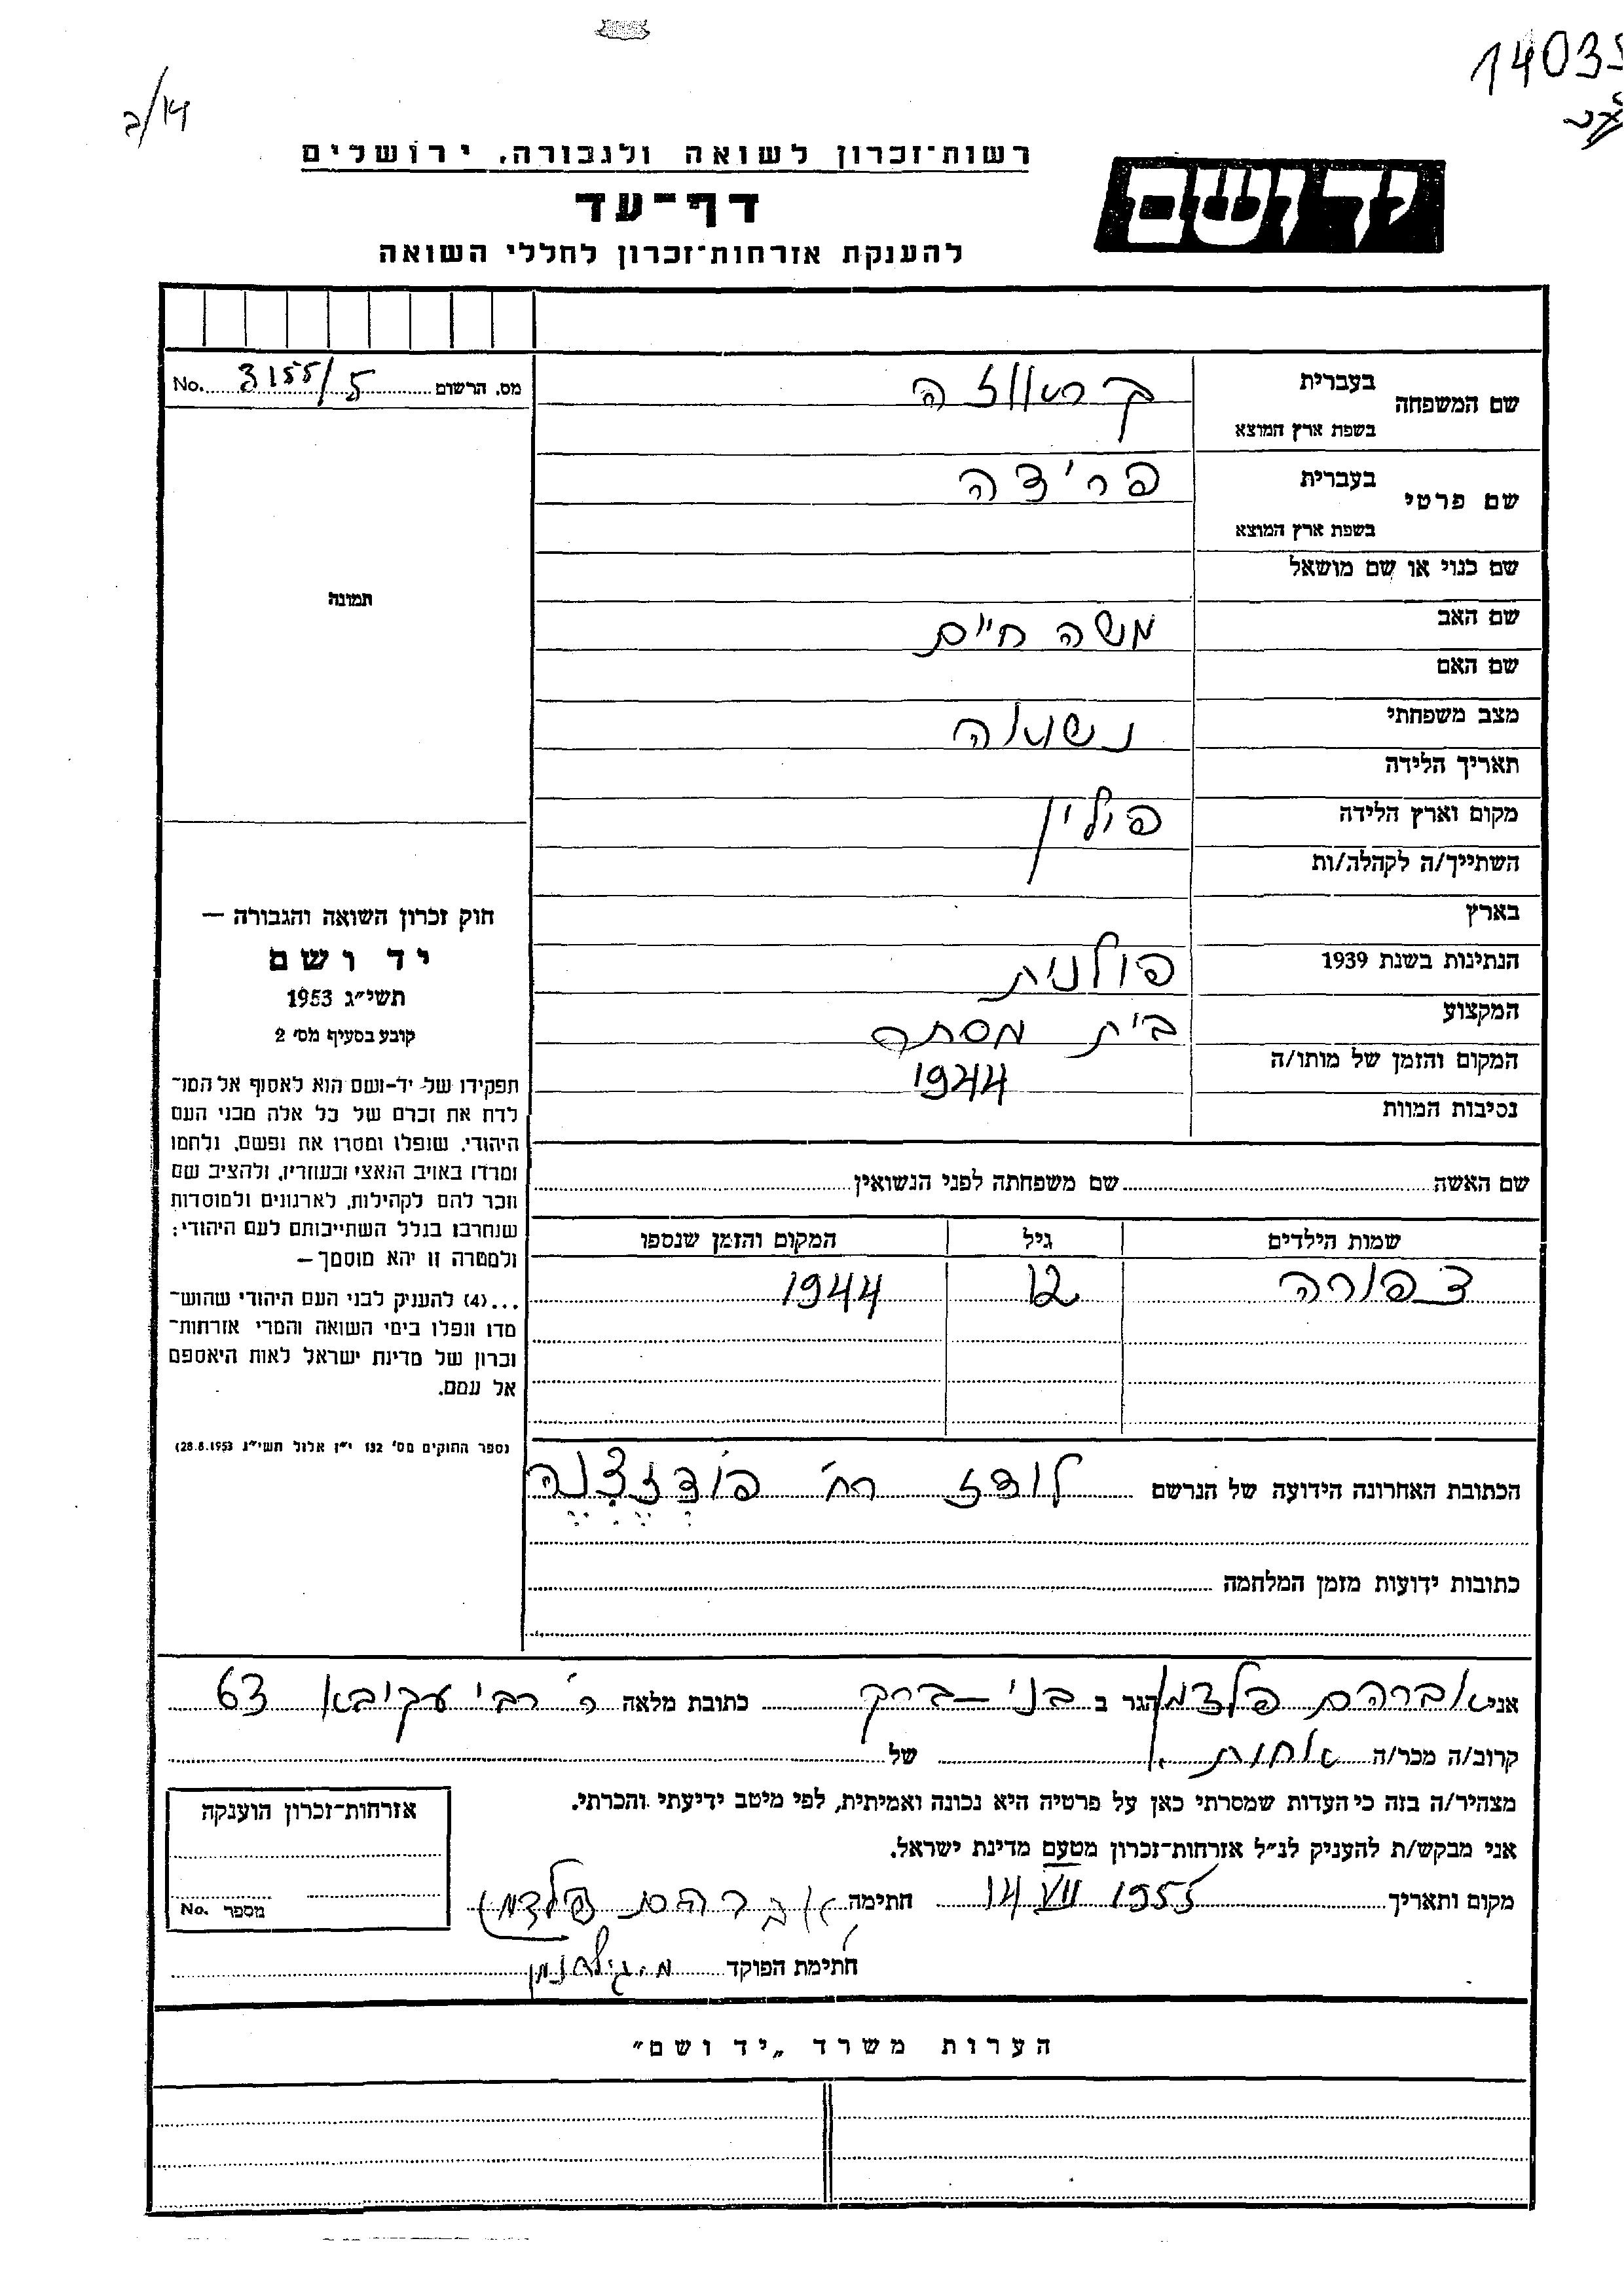 14035
ב/14
רשות־זכרון לשואה ולגבורה, ירושלים
יד ושם
דף־עד
להענקת אזרחות־זכרון לחללי השואה
מס. הרשום 3155/5 No.
שם המשפחה
בעברית
בשפת ארץ המוצא
שם פרטי
בעברית פרידה
בשפת ארץ המוצא
תמונה
שם כנוי או שם מושאל
שם האב משה חיים
שם האם
מצב משפחתי נשואה
תאריך הלידה
מקום וארץ הלידה פולין
השתייך/ה לקהלה/ות
בארץ
הנתינות בשנת 1939 פולנית
המקצוע בית מסחר
המקום והזמן של מותו/ה 1944
נסיבות המוות
חוק זכרון השואה והגבורה —
יד ושם
תשי״ג 1953
קובע בסעיף מס׳ 2
תפקידו של יד-ושם הוא לאסוף אל המו־
לדת את זכרם של כל אלה מבני העם
היהודי, שנפלו ומסרו את נפשם, נלחמו
ומרדו באויב הנאצי ובעוזריו, ולהציב שם
וזכר להם לקהילות, לארגונים ולמוסדות
שנחרבו בגלל השתייכותם לעם היהודי;
ולמטרה זו יהא מוסמך —
...(4) להעניק לבני העם היהודי שהוש־
מדו ונפלו בימי השואה והמרי אזרחות־
זכרון של מדינת ישראל לאות היאספם
אל עמם.
(ספר החוקים מס׳ 132 י״ז אלול תשי״ג 28.8.1953)
שם האשה שם משפחתה לפני הנשואין
שמות הילדים גיל המקום והזמן שנספו
צפורה 12 1944
הכתובת האחרונה הידועה של הנרשם לודז רח׳
כתובות ידועות מזמן המלחמה
אני אברהם פלדמן הגר ב בני-ברק כתובת מלאה ר׳ רבי עקיבא 63
קרוב/ה מכר/ה אחות של
מצהיר/ה בזה כי העדות שמסרתי כאן על פרטיה היא נכונה ואמיתית, לפי מיטב ידיעתי והכרתי.
אני מבקש/ת להעניק לנ״ל אזרחות־זכרון מטעם מדינת ישראל.
מקום ותאריך 14 VII 1955 חתימה אברהם פלדמן
חתימת הפוקד
אזרחות־זכרון הוענקה
מספר No.
הערות משרד „יד ושם״